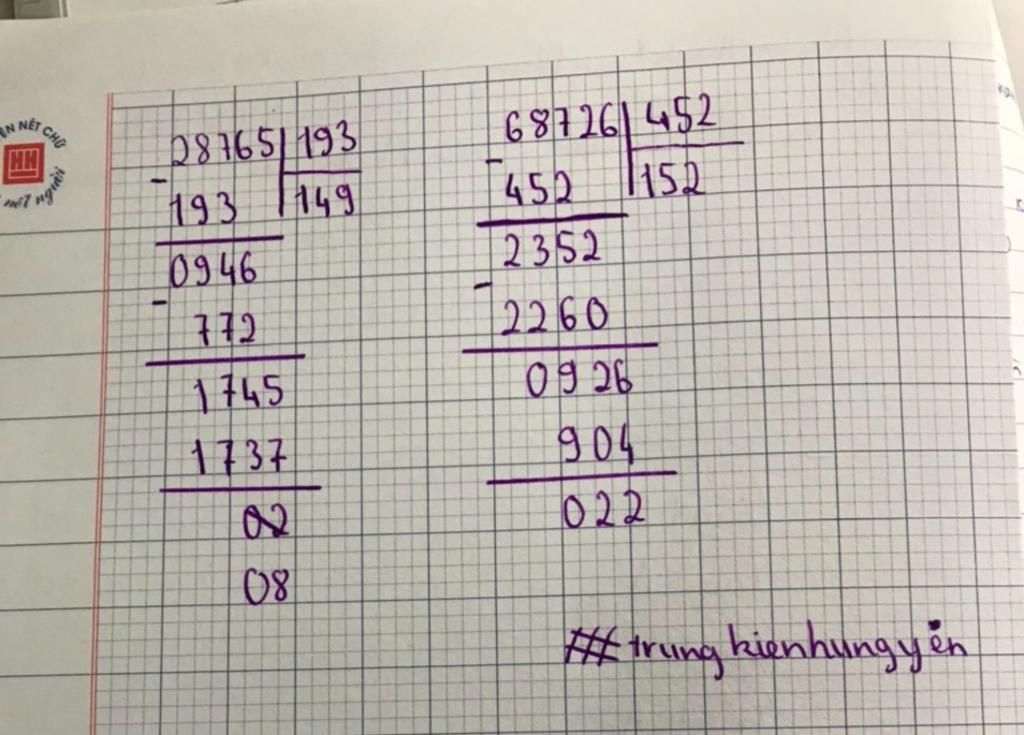 28765 193
- 193 149
0946
- 772
1745
1737
02
08
68726 452
- 452 152
2352
- 2260
0926
904
022
#trungkienhungyên
ÈN NÉT CHỮ
HH
nết người